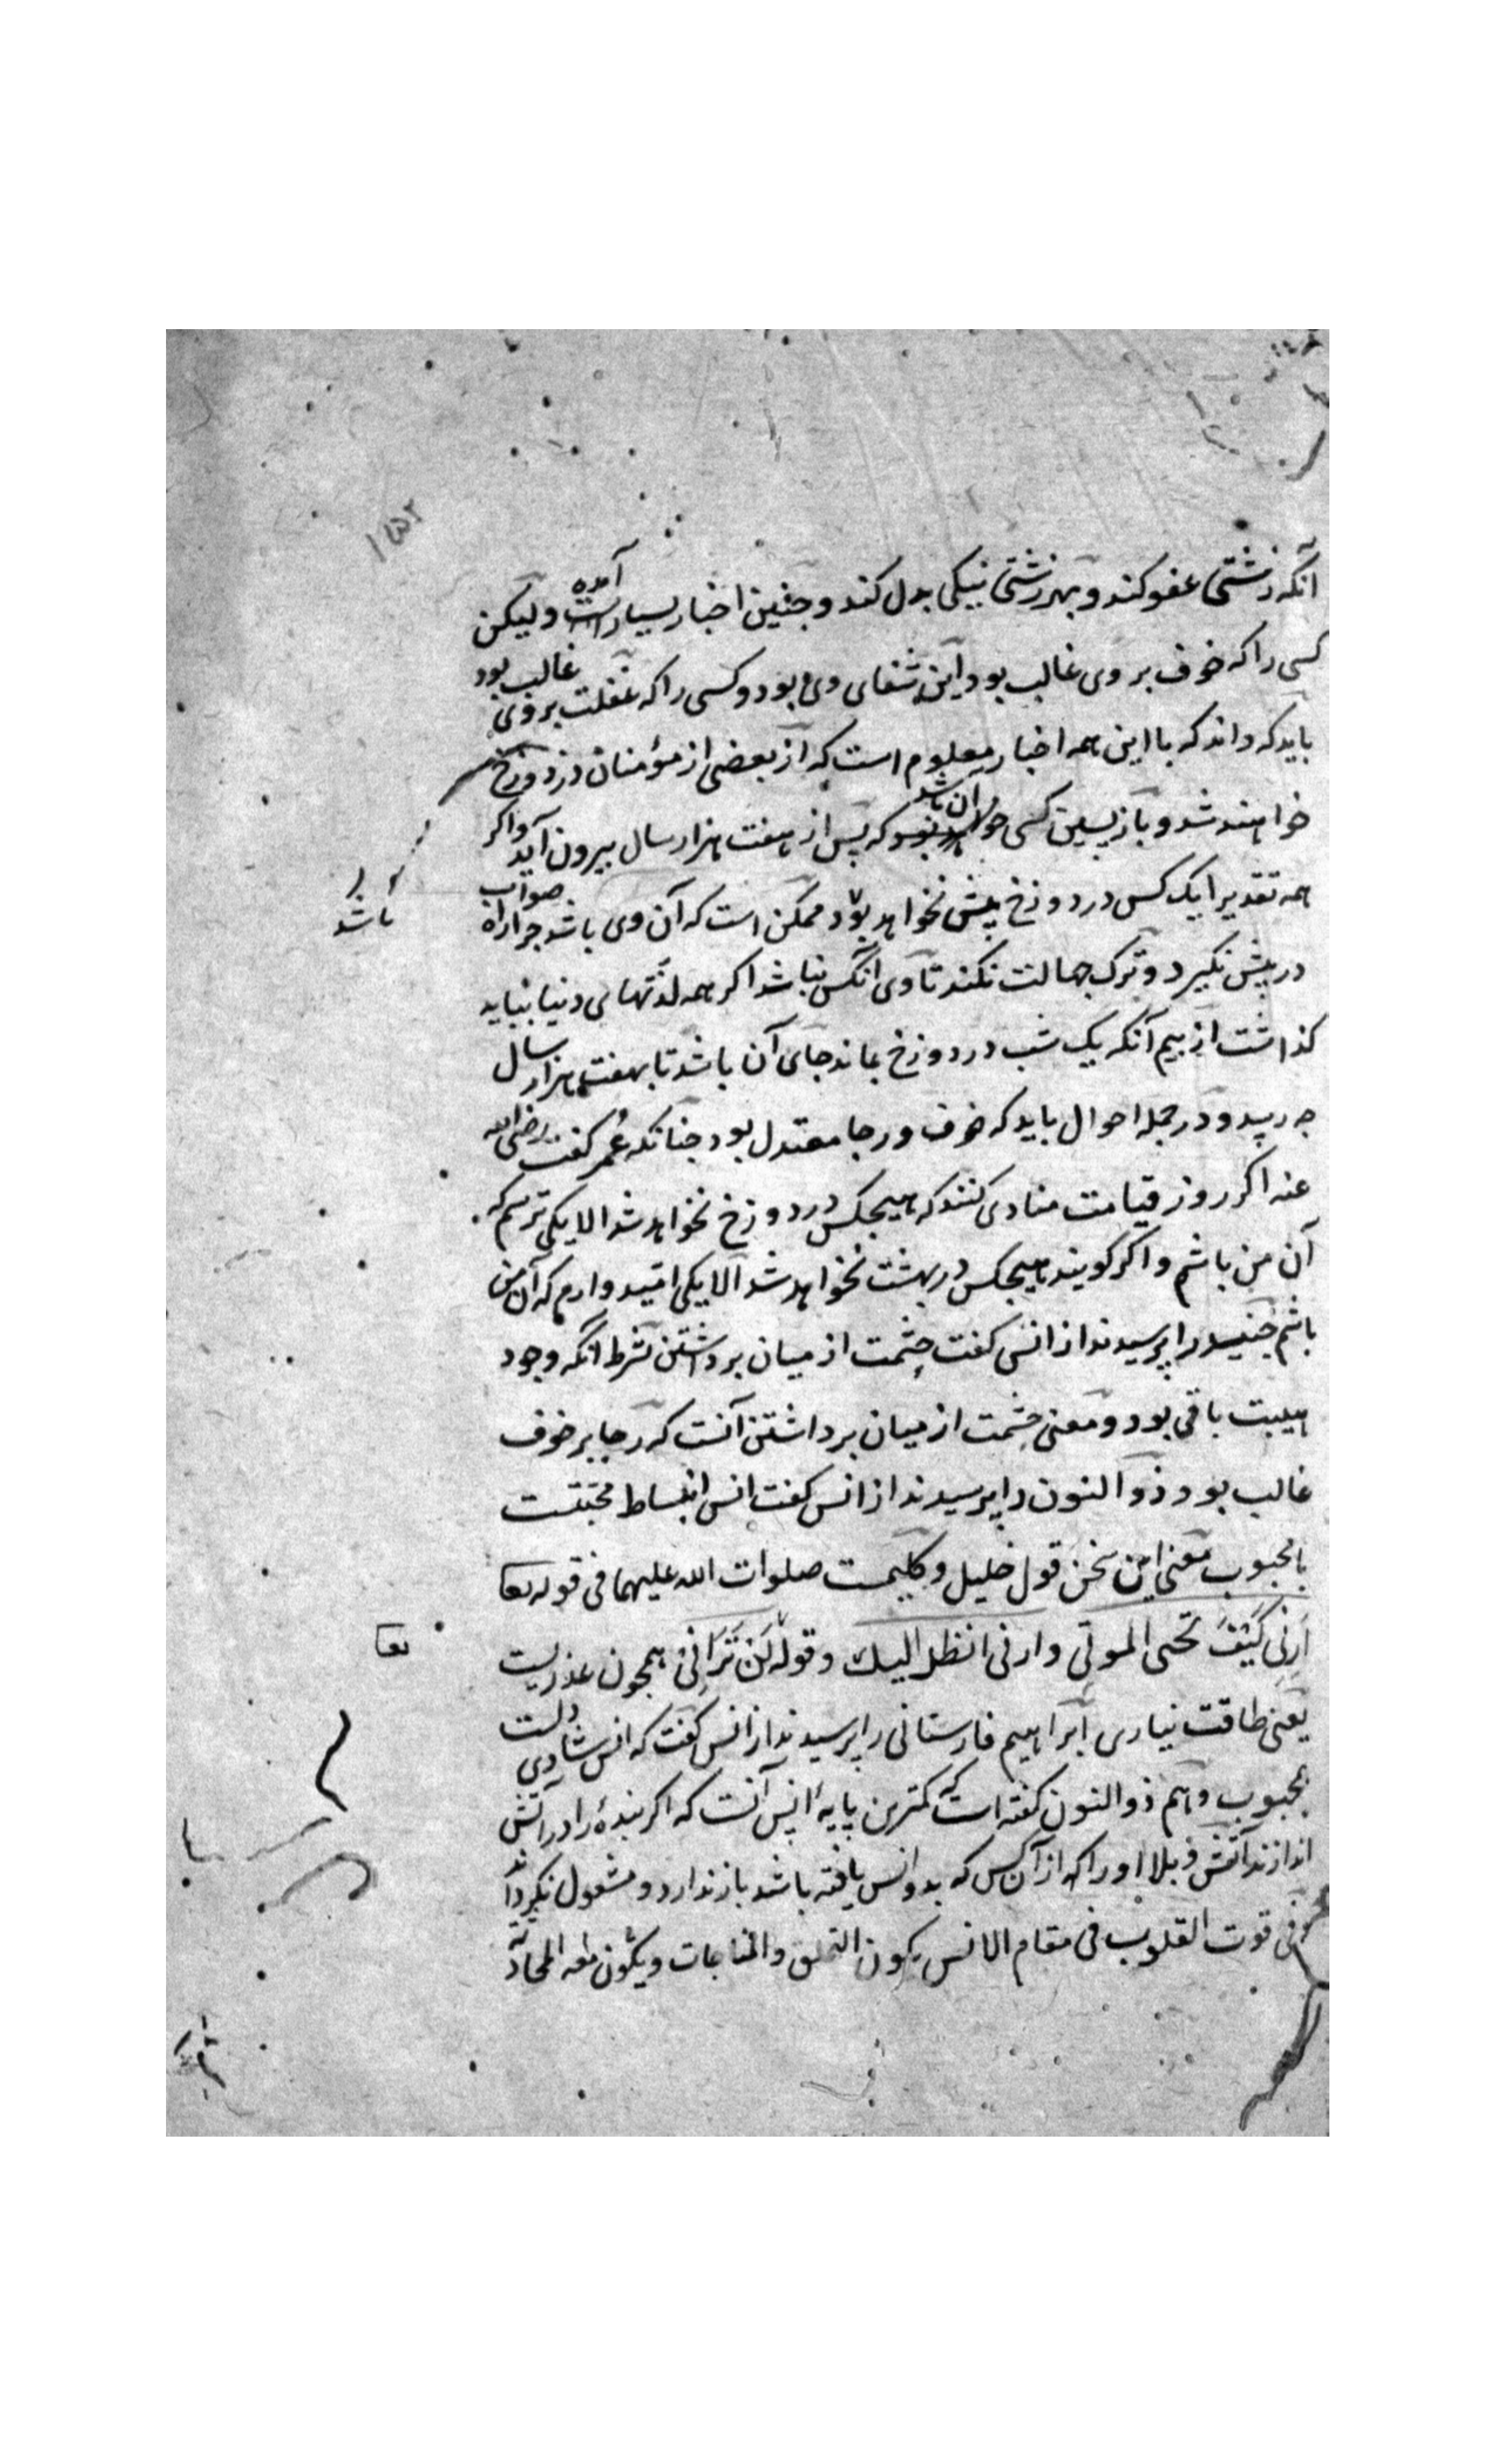 ۱۵۲
آنکه زشتی عفو کند و بهر زشتی نیکی بدل کند و جنین اخبار بسیار است آمده ولیکن
کسی را که خوف بر وی غالب بود این شفای وی بود و کسی را که غفلت بر وی غالب بود
باید که داند که با این همه اخبار معلوم است که از بعضی از مؤمنان در دوزخ
خواهند شد و باز پسین کسی آن باشد که پس از هفت هزار سال بیرون آید و اکر
همه تقدیرا یک کس در دوزخ بیش نخواهد بود ممکن است که آن وی باشد جرا راه صواب
باشد
در پیش نکیرد و ترک جهالت نکند تا وی آنکس نباشد اکر همه لذتهای دنیا بباید
کذاشت از بیم آنکه یک شب در دوزخ بماند جای آن باشد تا بهفت هزار سال
جه رسد و در جمله احوال باید که خوف و رجا معتدل بود جنانکه عُمر کفت رضی الله
عنه اکر روز قیامت منادی کنند که هیجکس در دوزخ نخواهد شد الا یکی ترسم که
آن من باشم و اکر کویند هیجکس در بهشت نخواهد شد الا یکی امّید دارم که آن من
باشم جنید را پرسیدند از انس کفت حِشمت از میان برداشتن بشرط آنکه وجود
هیبت باقی بود و معنی حِشمت از میان برداشتن آنست که رجا بر خوف
غالب بود ذو النون را پرسیدند از انس کفت انس انبساط محبتست
با محبوب معنی این سخن قول خلیل و کلیمست صلوات الله علیهما فی قوله تعا
اَرِنِی کَیْفَ تحیی الموتی و ارنی انظر الیک و قوله لَنْ تَرَانِی همجون عذریست
تعا
یعنی طاقت نیاری ابراهیم مارستانی را پرسیدند از انس کفت که انس شادی دلست
بمحبوب و هم ذو النون کفته است که کمترین پایهٔ انس آنست که اکر بندهٔ را در آتش
اندازند آتش و بلا او را که از آن کس که بدو انس یافته باشد باز ندارد و مشغول نکرداند
فی قوت القلوب فی مقام الانس یکون التملق والمناجات و یکون معه المحادثة